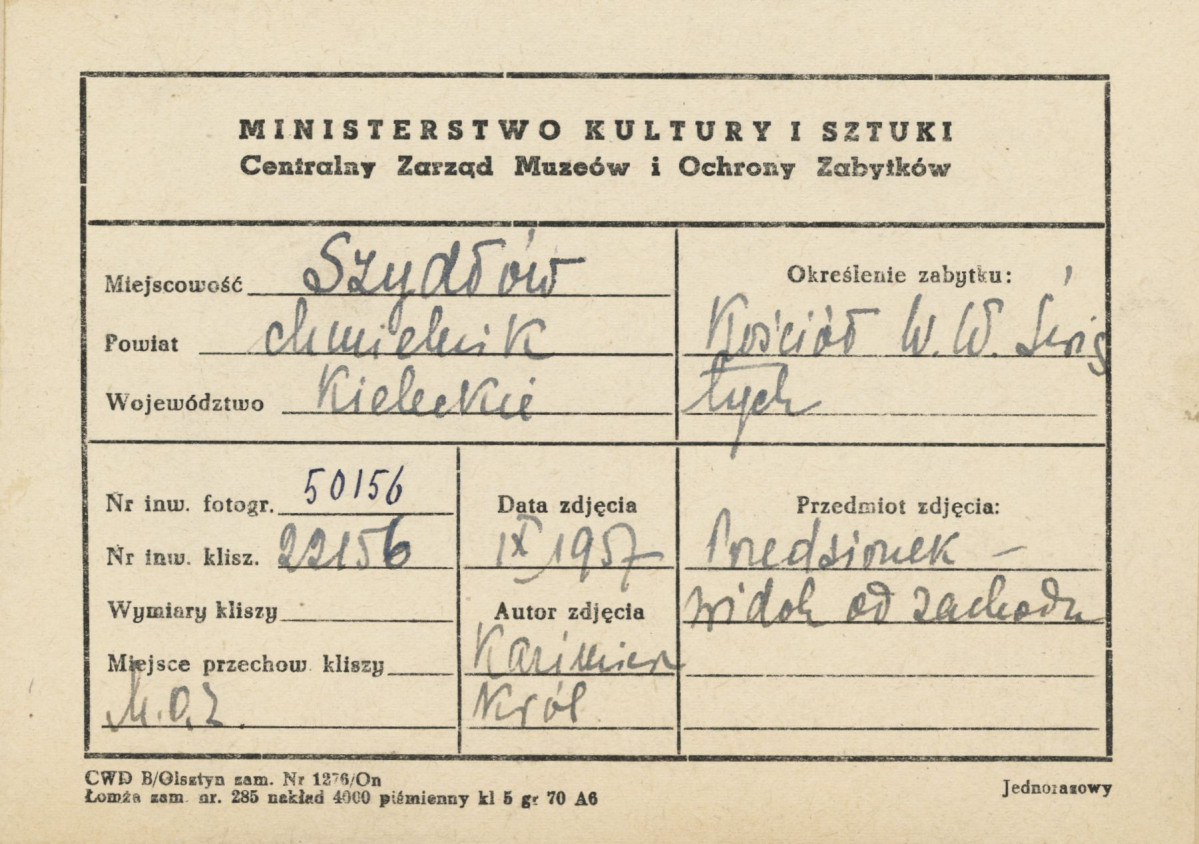 MINISTERSTWO KULTURY I SZTUKI
Centralny Zarząd Muzeów i Ochrony Zabytków
Miejscowość Szydłów
Powiat chmielnik
Województwo Kieleckie
Określenie zabytku:
Kościół W.W. Świę
tych
Nr inw. fotogr. 50156
Nr inw. klisz. 22156
Wymiary kliszy
Miejsce przechow. kliszy
M.O.Z.
Data zdjęcia
IX 1957
Autor zdjęcia
Kazimierz
Król
Przedmiot zdjęcia:
Przedsionek –
widok od zachodu
CWD B/Olsztyn zam. Nr 1276/On
Łomża zam. nr. 285 nakład 4000 piśmienny kl 5 gr 70 A6
Jednorazowy